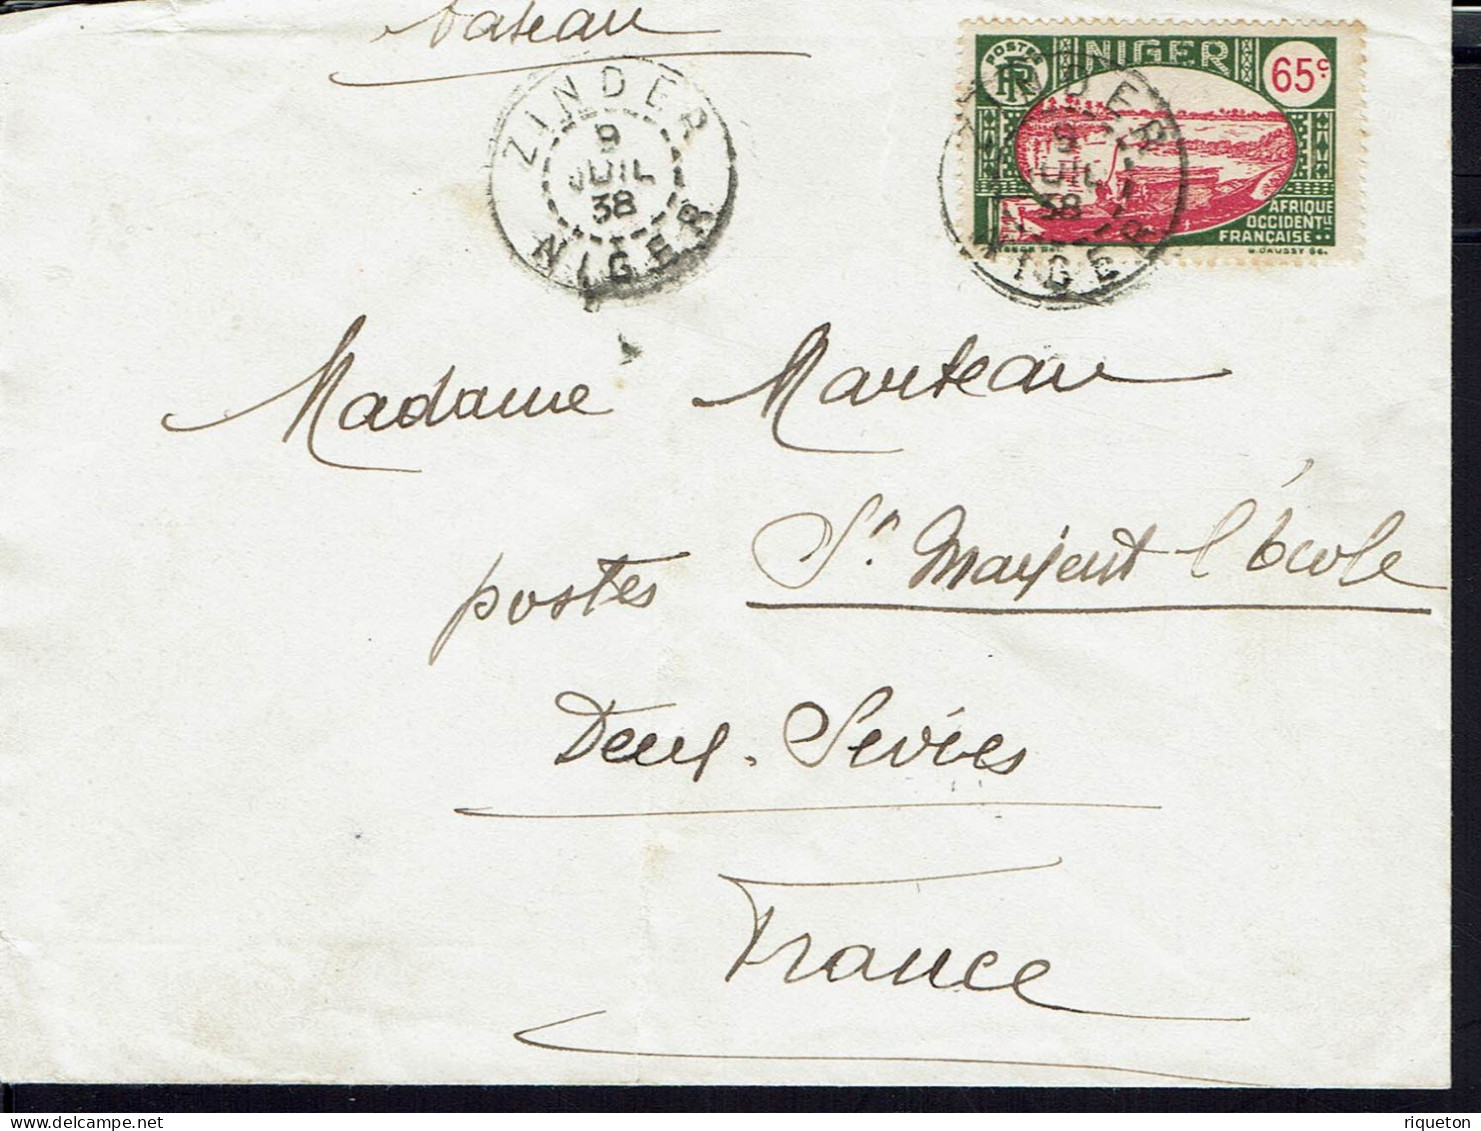 bateau
ZINDER
9
JUIL
38
NIGER
POSTES
RF
NIGER
65c.
AFRIQUE
OCCIDENTLE
FRANÇAISE
G. DAUSSY
ZINDER
9
JUIL
38
NIGER
Madame Marteau
postes St Maixent l'École
Deux-Sèvres
France
riqueton